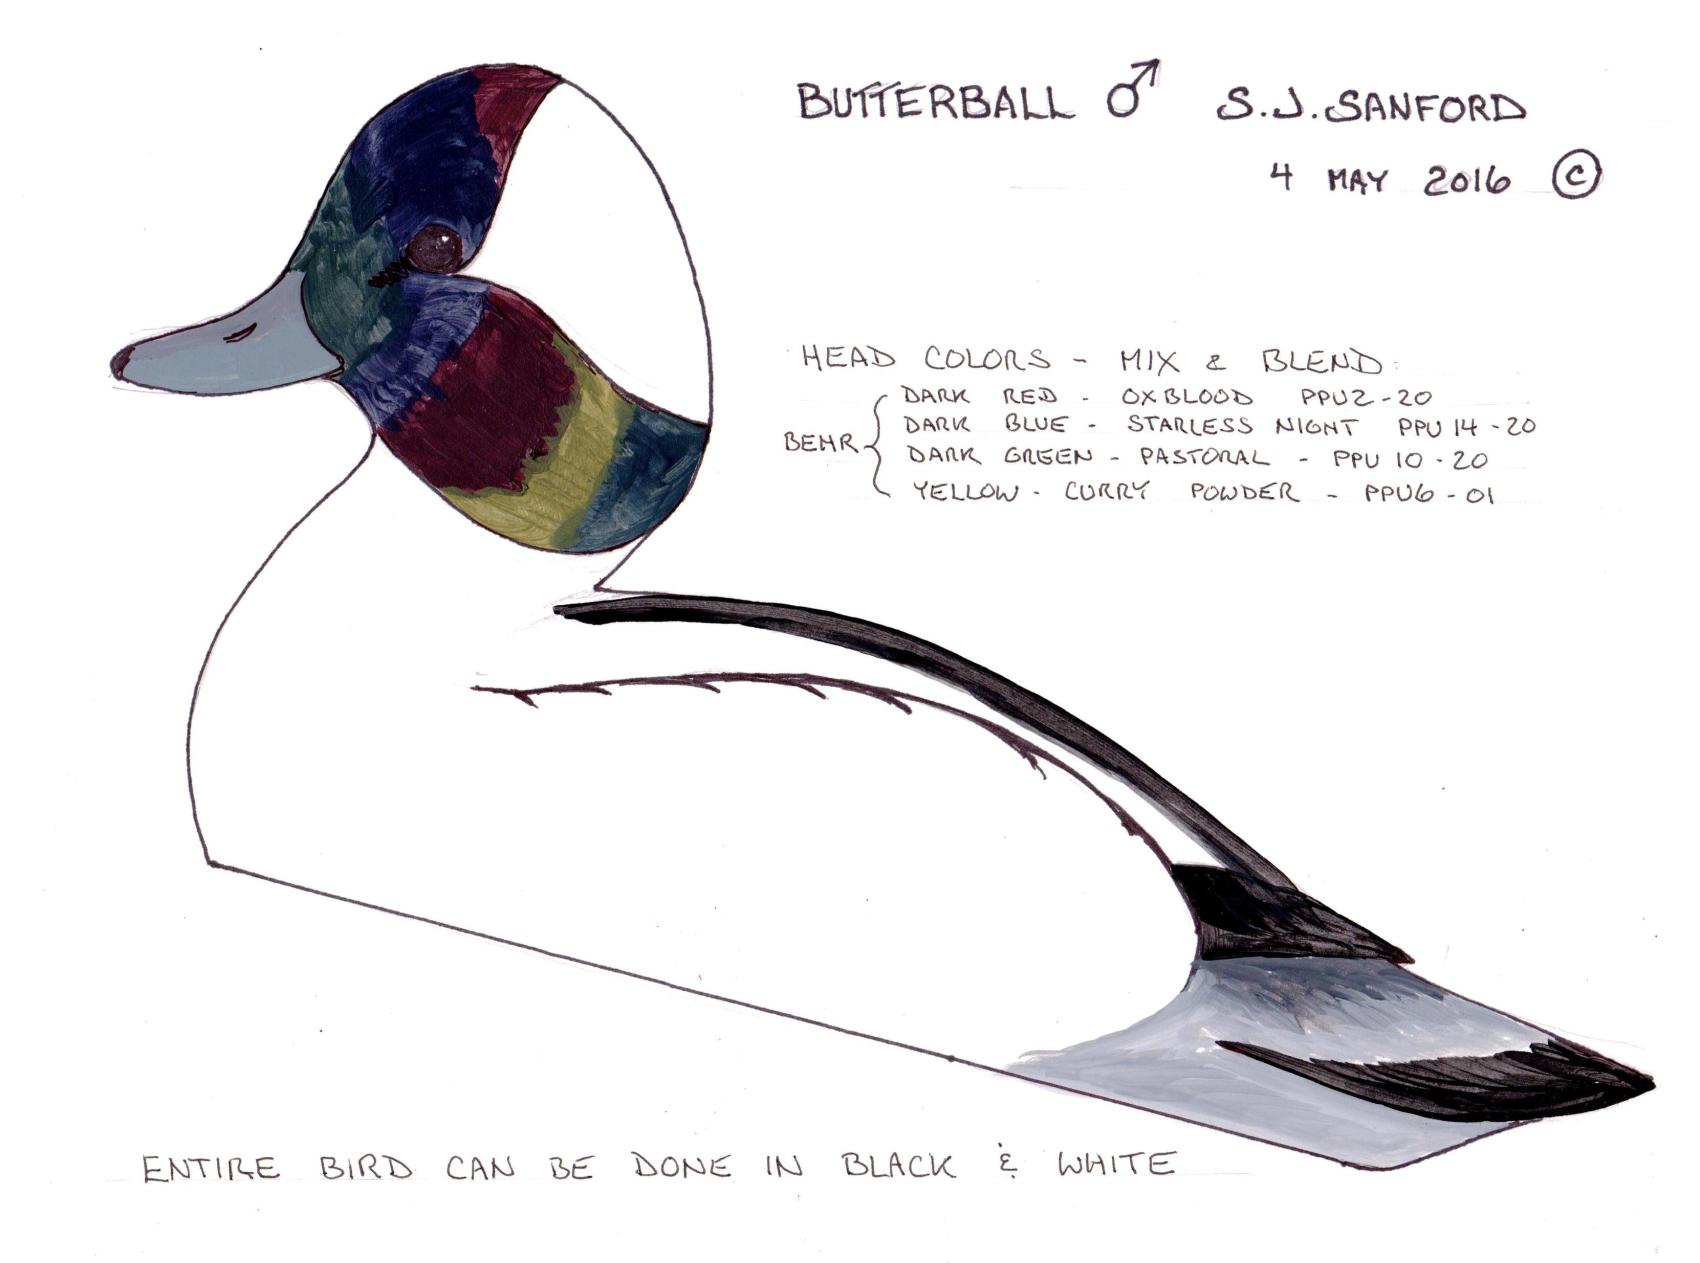 BUTTERBALL ♂ S.J. SANFORD
4 MAY 2016 ©
HEAD COLORS - MIX & BLEND:
BEHR { DARK RED - OXBLOOD PPU2-20
DARK BLUE - STARLESS NIGHT PPU 14-20
DARK GREEN - PASTORAL - PPU 10-20
YELLOW - CURRY POWDER - PPU6-01
ENTIRE BIRD CAN BE DONE IN BLACK & WHITE